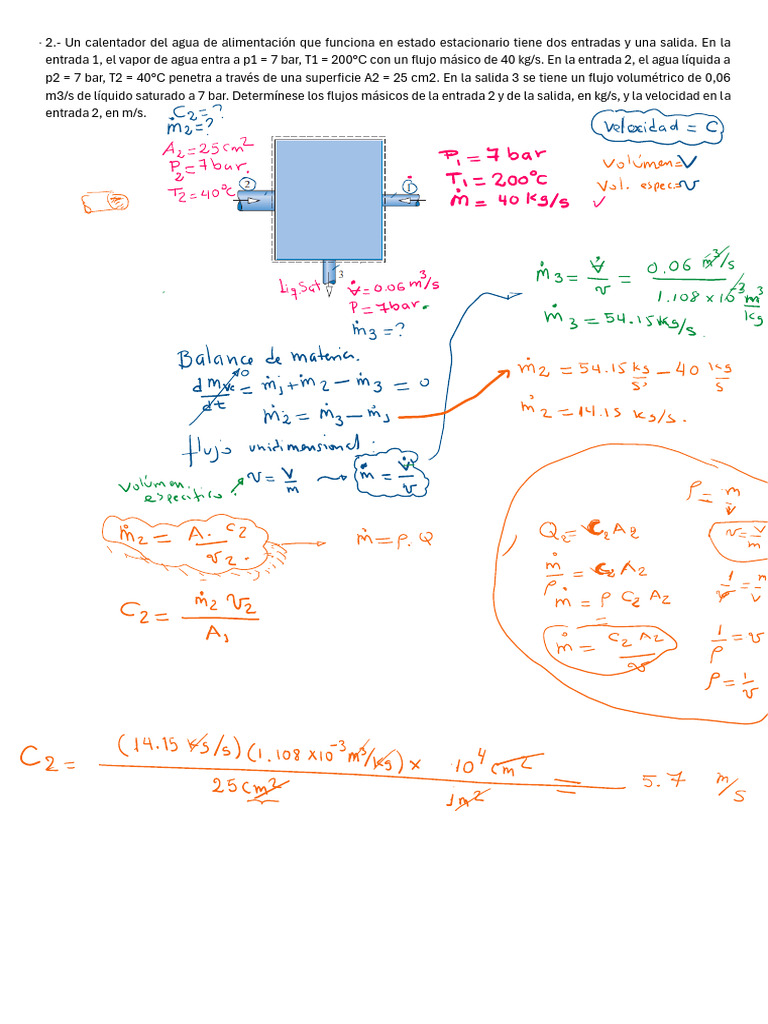 · 2.- Un calentador del agua de alimentación que funciona en estado estacionario tiene dos entradas y una salida. En la
entrada 1, el vapor de agua entra a p1 = 7 bar, T1 = 200°C con un flujo másico de 40 kg/s. En la entrada 2, el agua líquida a
p2 = 7 bar, T2 = 40°C penetra a través de una superficie A2 = 25 cm2. En la salida 3 se tiene un flujo volumétrico de 0,06
m3/s de líquido saturado a 7 bar. Determínese los flujos másicos de la entrada 2 y de la salida, en kg/s, y la velocidad en la
entrada 2, en m/s.
C₂=?
ṁ₂=?
A₂=25cm²
P₂=7bar.
T₂=40°C
2
1
3
P₁=7bar
T₁=200°C
ṁ = 40 kg/s
velocidad = C
Volúmen=V
Vol. espec=v
Liq.Sat
V̇=0.06 m³/s
P=7bar.
ṁ₃=?
ṁ₃ = V̇/v = 0.06 m³/s / 1.108x10⁻³ m³/kg
ṁ₃ = 54.15 kg/s.
Balance de materia.
dm_vc/dt = ṁ₁+ṁ₂-ṁ₃ = 0
0
ṁ₂=ṁ₃-ṁ₁
ṁ₂ = 54.15 kg/s - 40 kg/s
ṁ₂=14.15 kg/s.
flujo unidimensional:
Volúmen especifico.
v=V/m
ṁ=V̇/v
ṁ₂ = A·C₂/v₂.
ṁ=ρ.Q
C₂= ṁ₂ v₂/A₁
ρ=m/V
v=V/m
1/v=m/V
1/ρ=v
ρ=1/v
Q₂=C₂A₂
ṁ/ρ = C₂A₂
ṁ = ρ C₂ A₂
ṁ = C₂A₂/v
C₂= (14.15 kg/s)(1.108x10⁻³ m³/kg) x 10⁴ cm² / 25cm² 1m² = 5.7 m/s